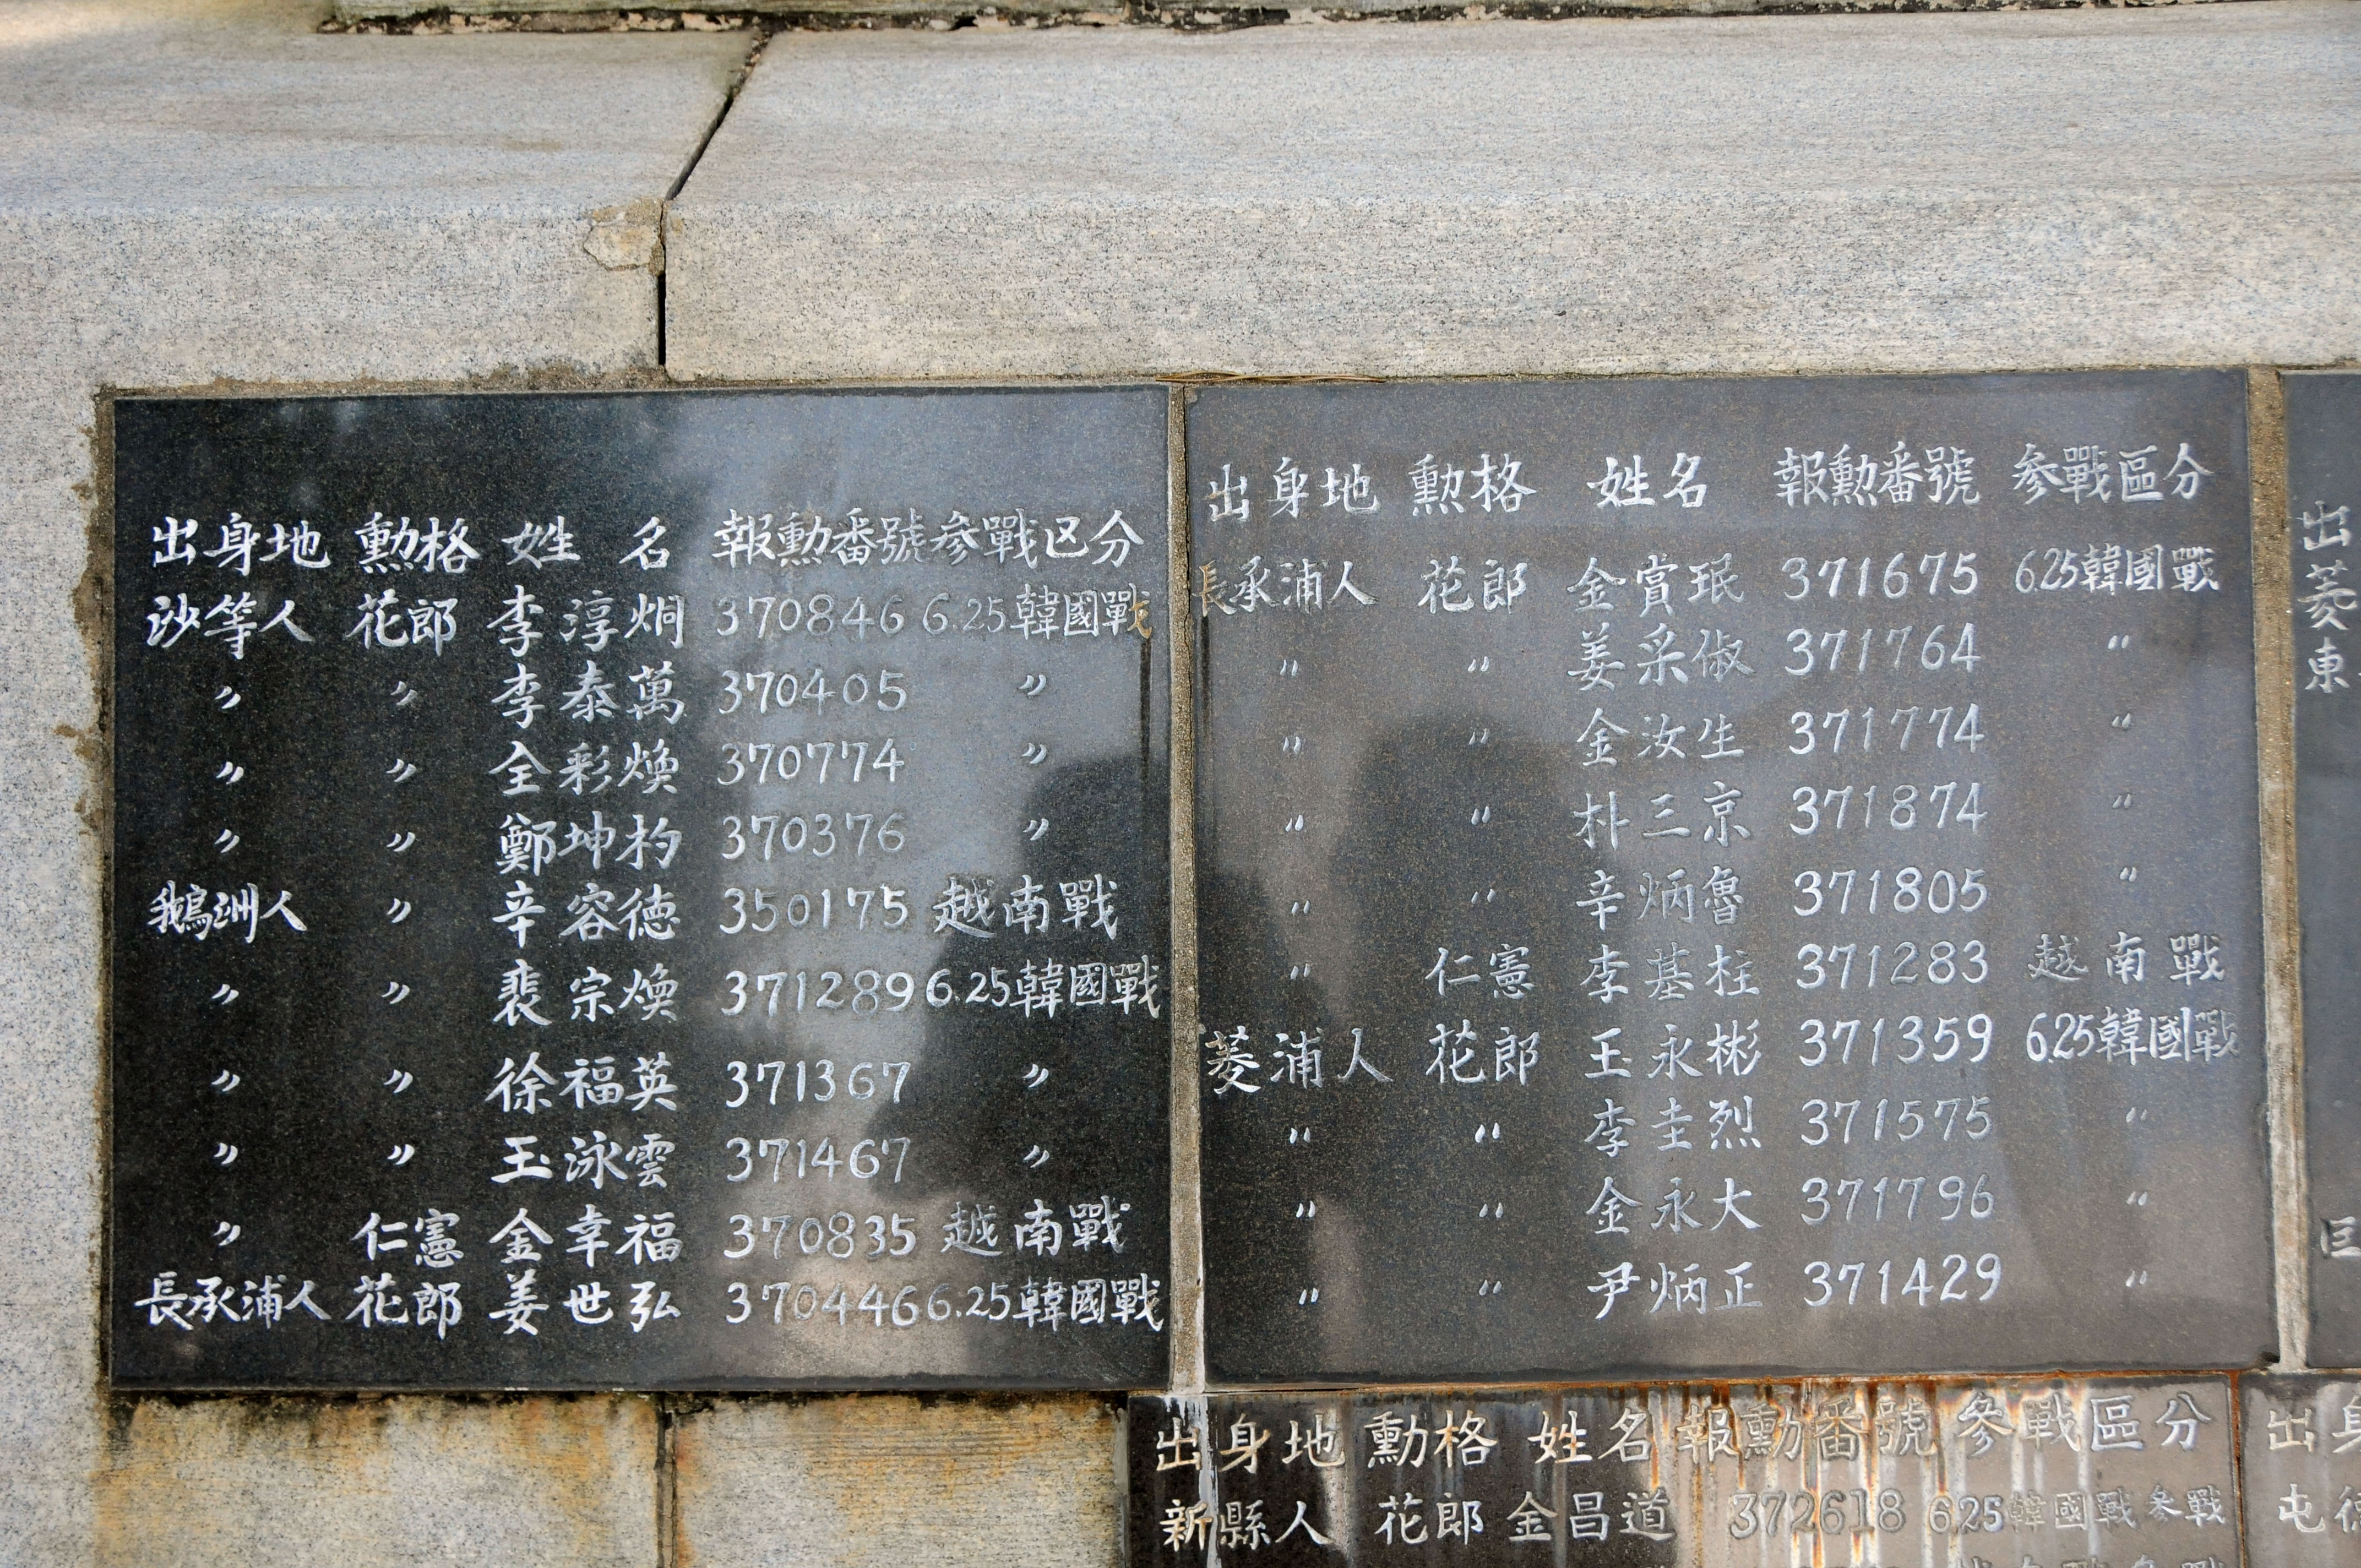 出身地 勲格 姓 名 報勲番號 參戰区分
沙等人 花郎 李淳炯 370846 6.25韓國戰
〃 〃 李泰萬 370405 〃
〃 〃 全彩煥 370774 〃
〃 〃 鄭坤杓 370376 〃
鵝洲人 〃 辛容德 350175 越南戰
〃 〃 裵宗煥 371289 6.25韓國戰
〃 〃 徐福英 371367 〃
〃 〃 玉泳雲 371467 〃
〃 仁憲 金幸福 370835 越南戰
長承浦人 花郎 姜世弘 370446 6.25韓國戰
出身地 勲格 姓名 報勲番號 參戰區分
長承浦人 花郎 金賞珉 371675 6.25韓國戰
〃 〃 姜采俶 371764 〃
〃 〃 金汝生 371774 〃
〃 〃 朴三京 371874 〃
〃 〃 辛炳魯 371805 〃
〃 仁憲 李基柱 371283 越南戰
菱浦人 花郎 玉永彬 371359 6.25韓國戰
〃 〃 李圭烈 371575 〃
〃 〃 金永大 371796 〃
〃 〃 尹炳正 371429 〃
出
菱
東
出身地 勲格 姓名 報勲番號 參戰區分
新縣人 花郎 金昌道 372618 625韓國戰參戰
出身
屯德